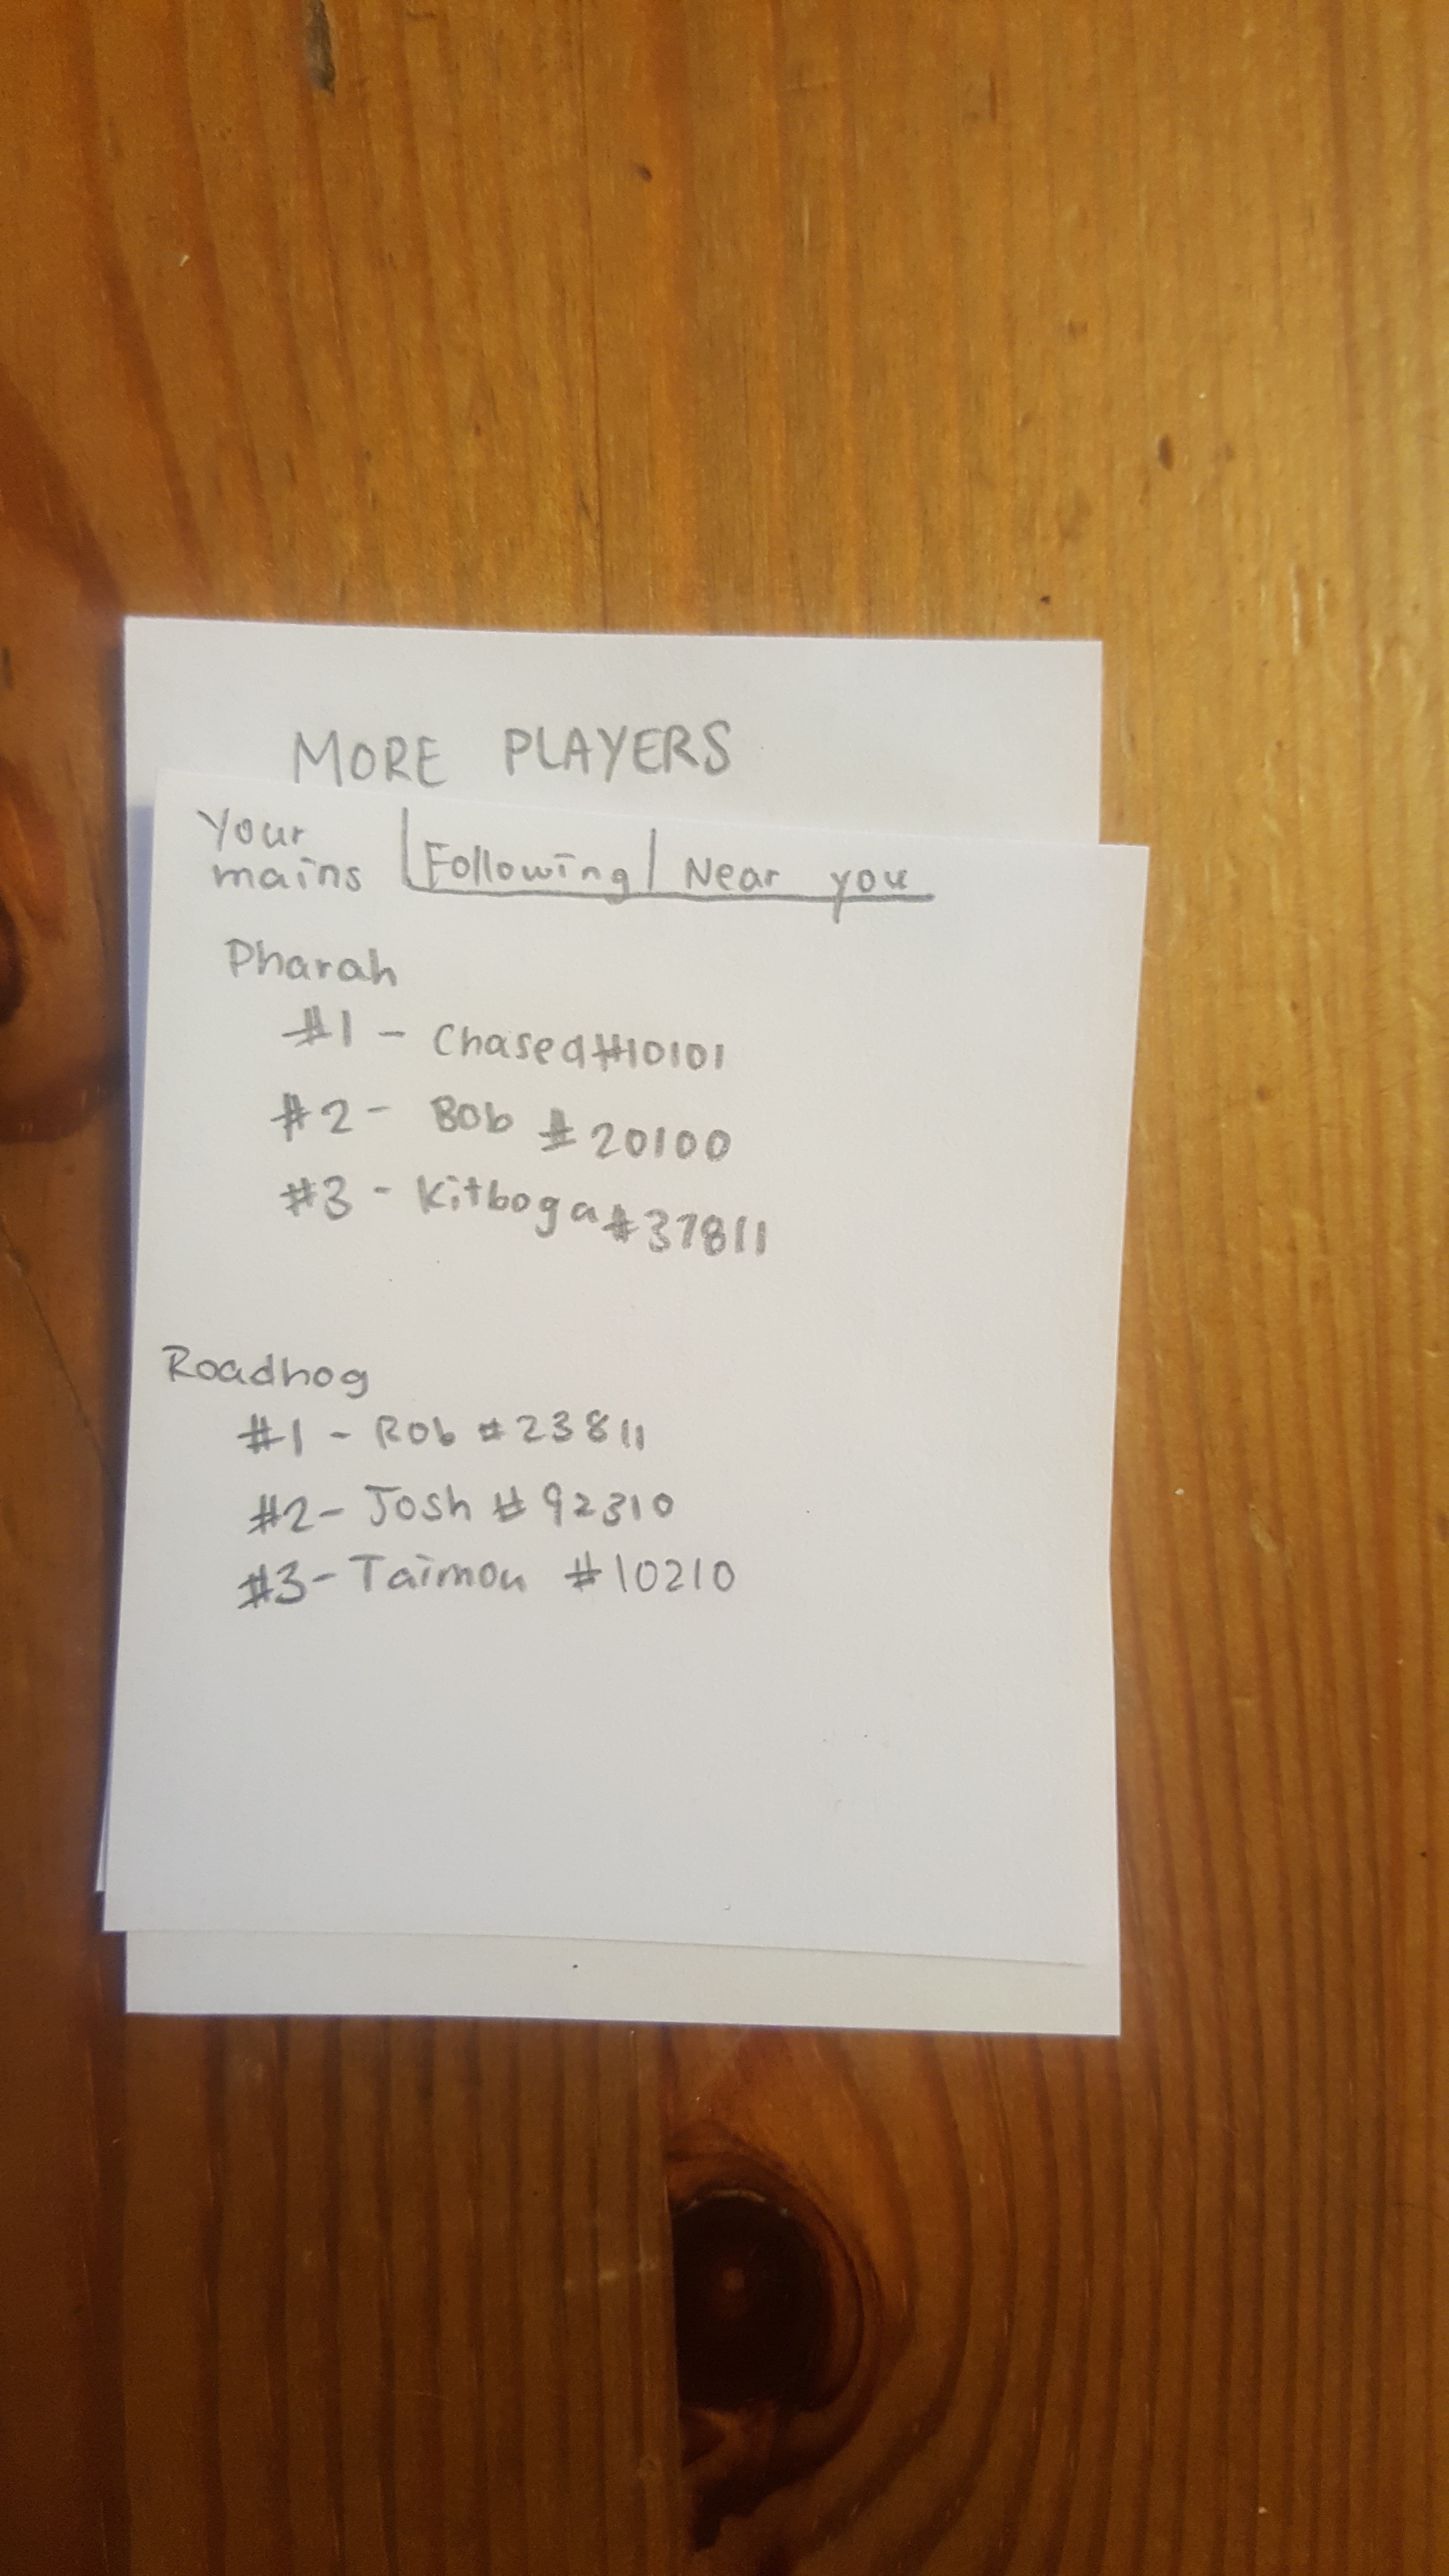 MORE PLAYERS
Your mains | Following | Near you
Pharah
#1 - Chasea#10101
#2 - Bob #20100
#3 - Kitboga#37811
Roadhog
#1 - Rob #23811
#2 - Josh #92310
#3 - Taimou #10210